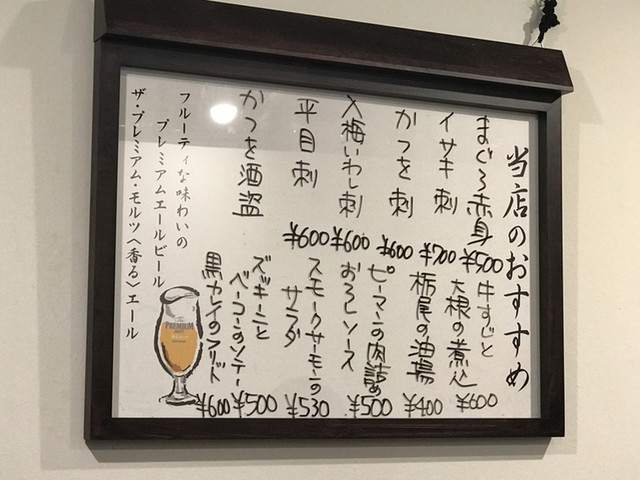 当店のおすすめ
まぐろ赤身 ¥500
イサキ刺 ¥700
かつを刺 ¥600
入梅いわし刺 ¥600
平目刺 ¥600
かつを酒盗
牛すじと
大根の煮込 ¥600
栃尾の油揚 ¥400
ピーマンの肉詰め
おろしソース ¥500
スモークサーモンの
サラダ ¥530
ズッキーニと
ベーコンのソテー ¥500
黒カレイのフリット ¥600
フルーティな味わいの
プレミアムエールビール
ザ・プレミアム・モルツ〈香る〉エール
PREMIUM